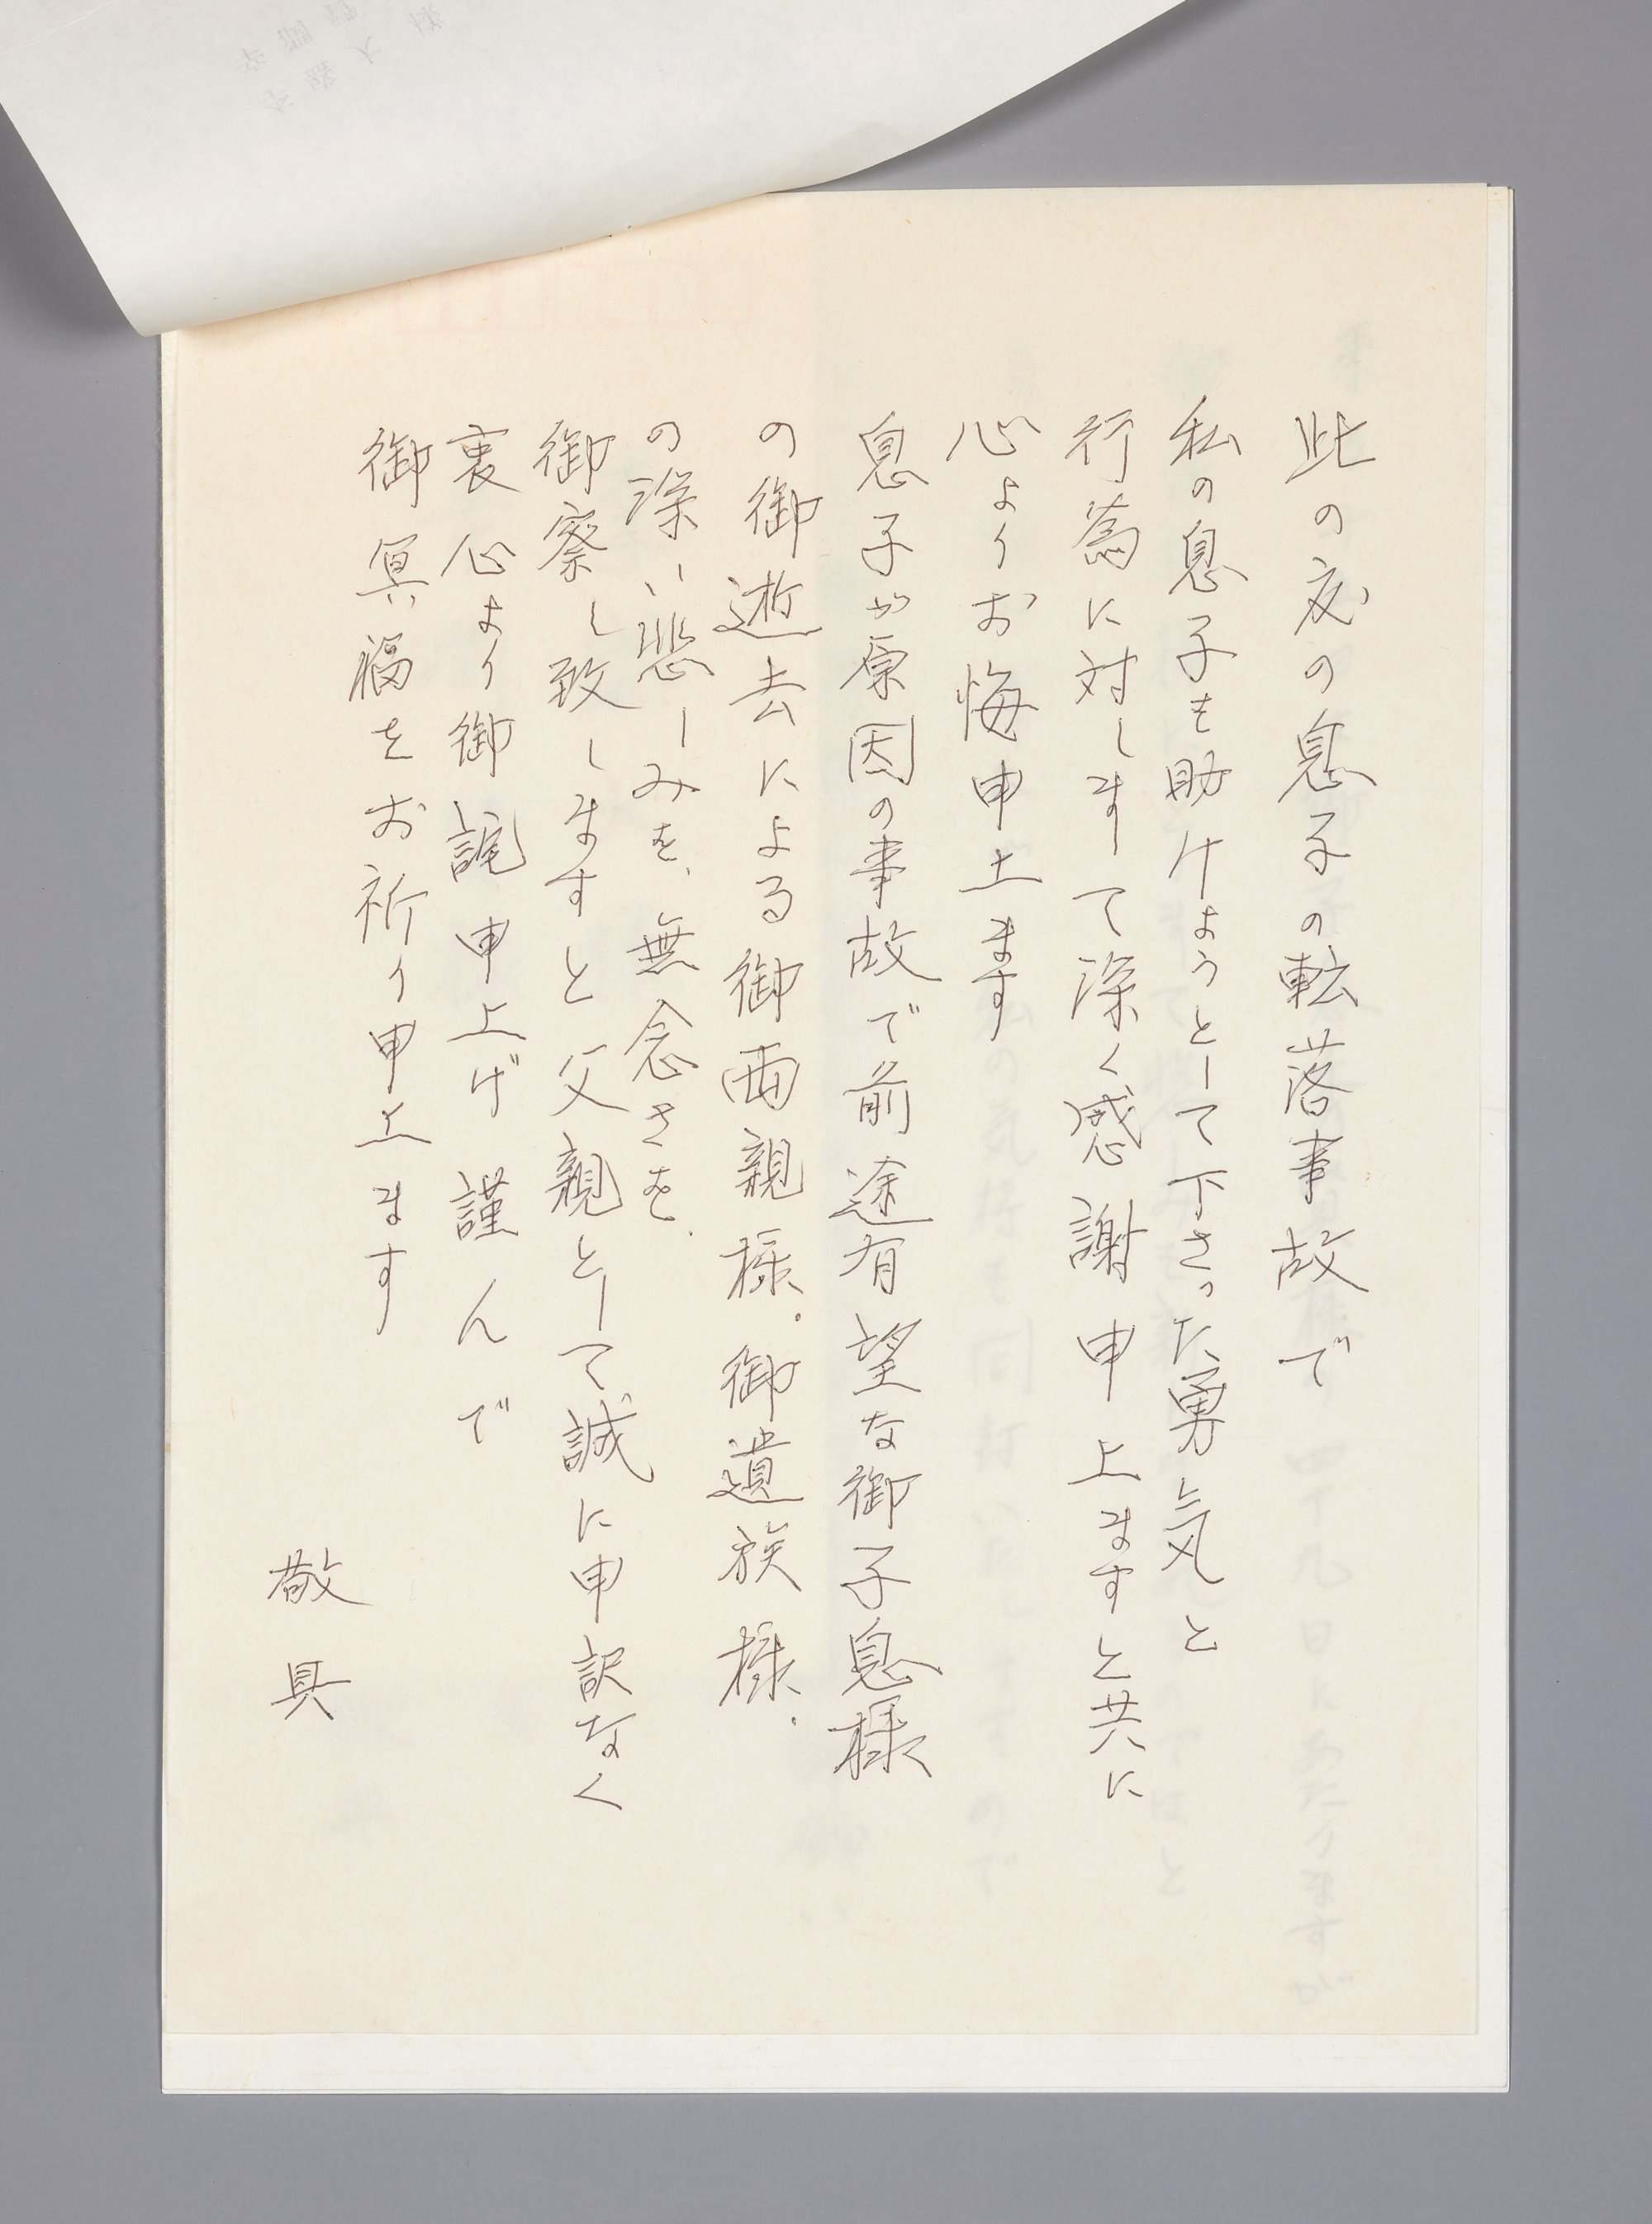 此の度の息子の転落事故で
私の息子を助けようとして下さった勇気と
行為に対しまして深く感謝申上ますと共に
心よりお悔申上ます
息子が原因の事故で前途有望な御子息様
の御逝去による御両親様、御遺族様、
の深い悲しみを、無念さを、
御察し致しますと父親として誠に申訳なく
衷心より御詫申上げ謹んで
御冥福をお祈り申上ます
敬具